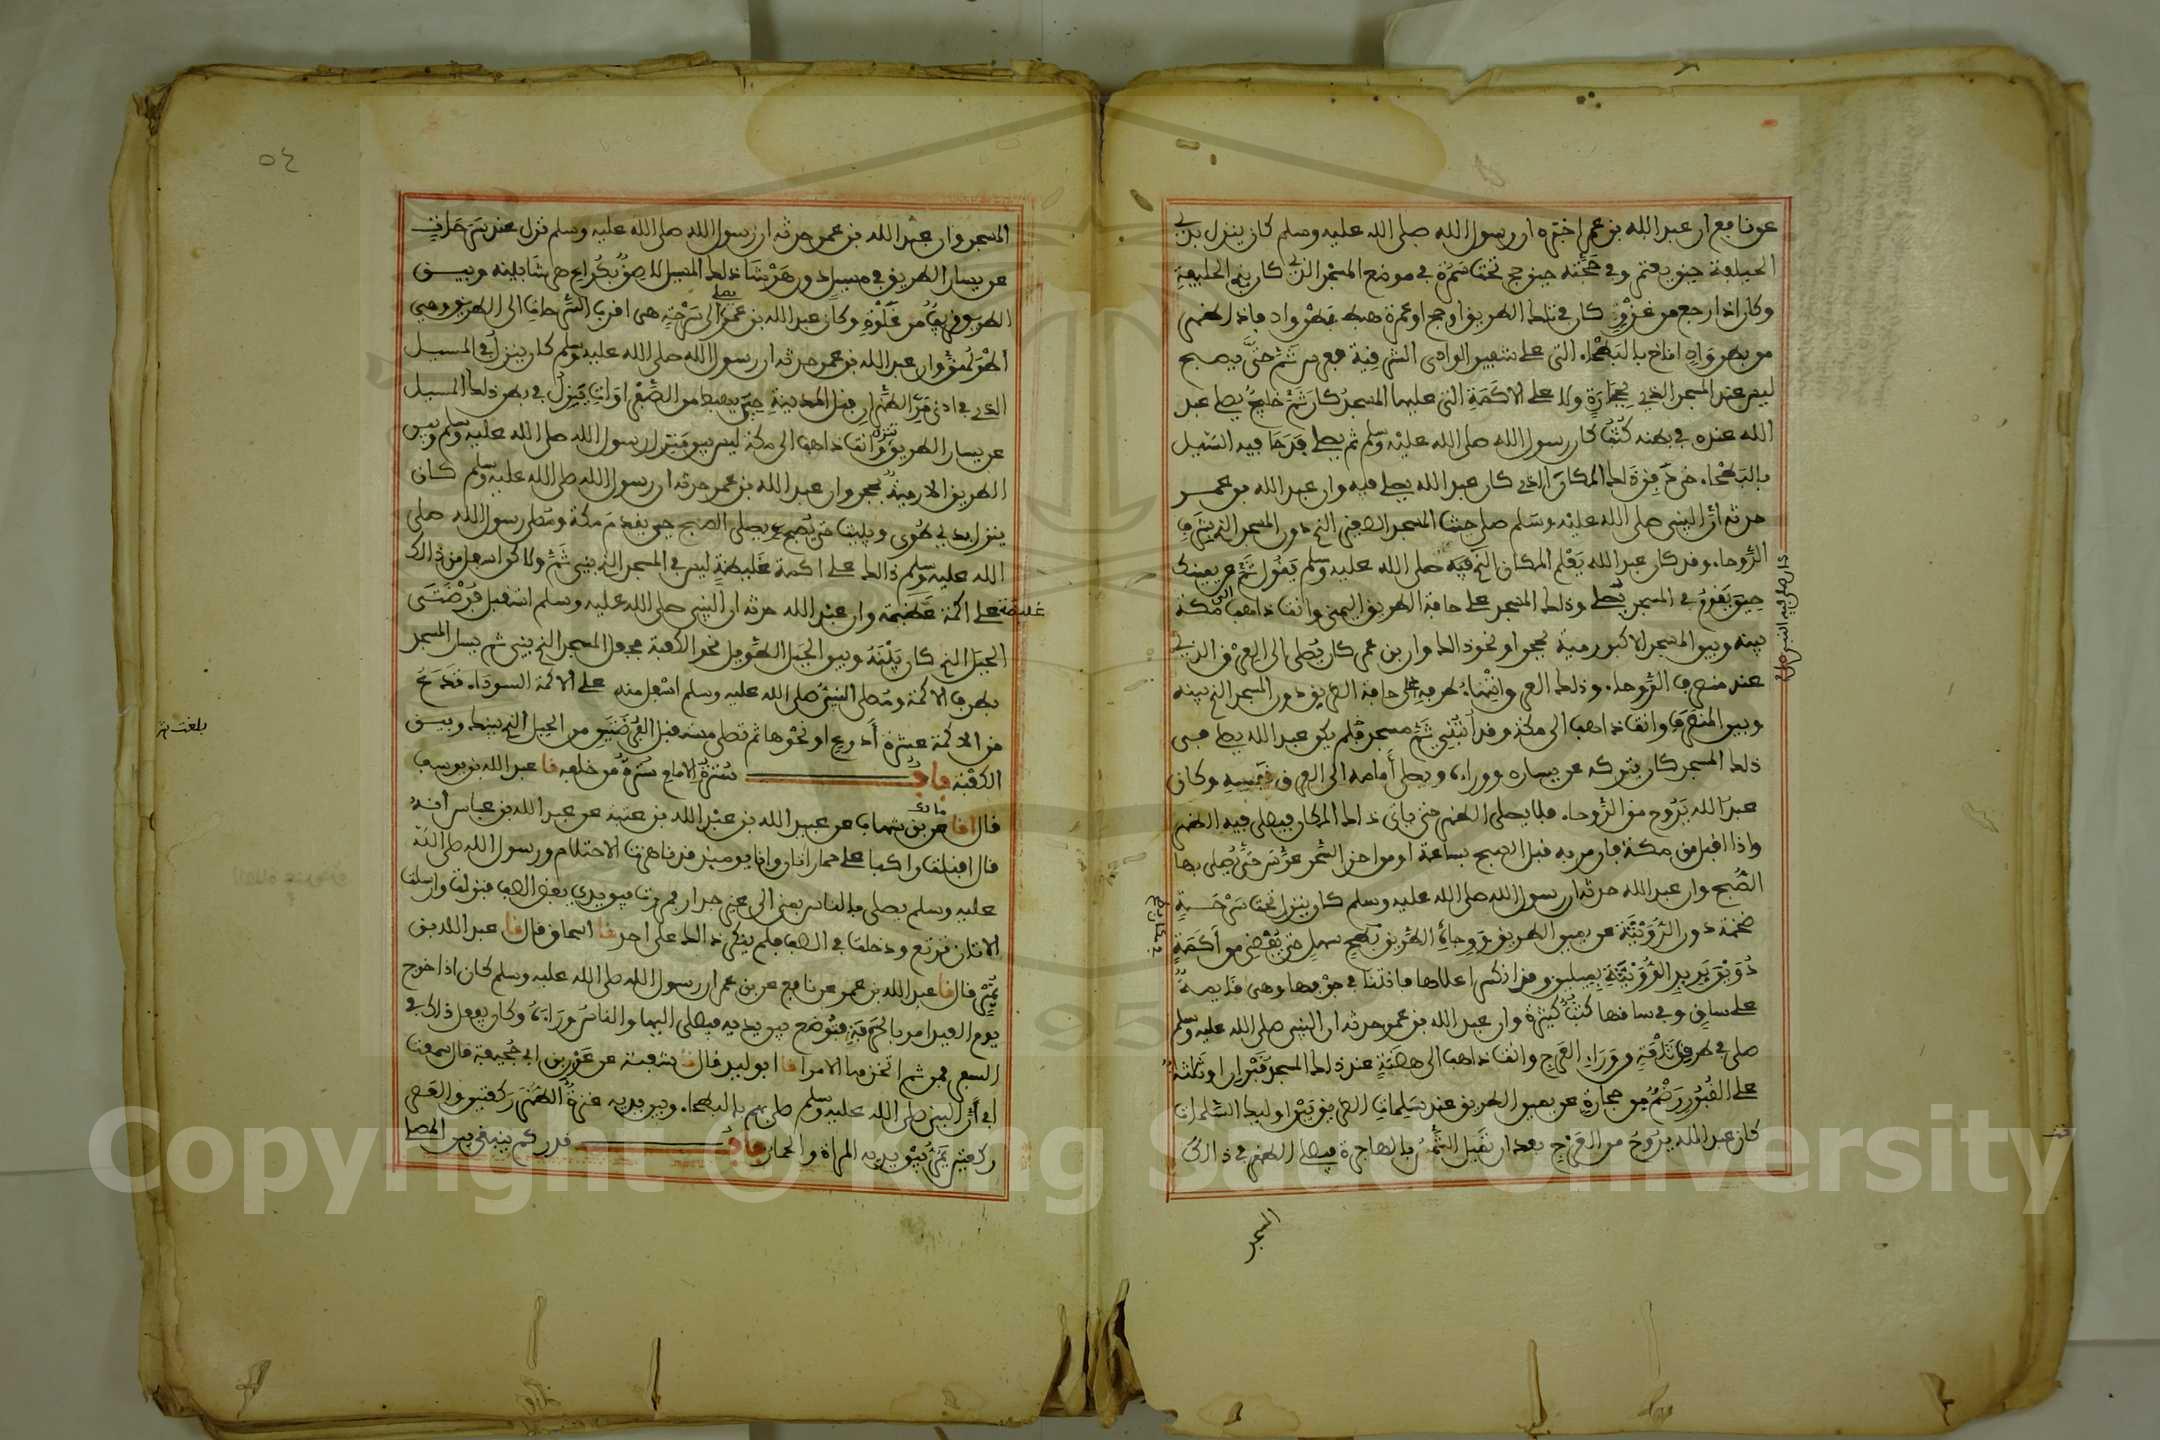 عن نافع ان عبد الله بن عمر اخبره ان رسول الله صلى الله عليه وسلم كان ينزل بذي
الحليفة حين يعتمر وفي حجته حين حج تحت سمرة في موضع المسجد الذي كان بذي الحليفة
وكان اذا رجع من غزو كان في تلك الطريق او حج او عمرة هبط بطن واد فاذا ظهر
من بطن واد اناخ بالبطحاء التي على شفير الوادي الشرقية فعرس ثم حتى يصبح
ليس عند المسجد الذي بحجارة ولا على الاكمة التي عليها المسجد كان ثم خليج يصلي عبد
الله عنده في بطنه كثب كان رسول الله صلى الله عليه وسلم ثم يصلي فدحا فيه السيل
بالبطحاء حتى دفن ذلك المكان الذي كان عبد الله يصلي فيه وان عبد الله بن عمر
حدثه ان النبي صلى الله عليه وسلم صلى حيث المسجد الصغير الذي دون المسجد الذي بشرف
الروحاء وقد كان عبد الله يعلم المكان الذي فيه صلى الله عليه وسلم يقول ثم عن يمينك
حين تقوم في المسجد تصلي وذلك المسجد على حافة الطريق اليمنى وانت ذاهب الى مكة
بينه وبين المسجد الاكبر رمية بحجر او نحو ذلك وان بن عمر كان يصلي الى العرق الذي
عند منصرف الروحاء وذلك العرق انتهاء طرفه على حافة الطريق دون المسجد الذي بينه
وبين المنصرف وانت ذاهب الى مكة وقد ابتني ثم مسجد فلم يكن عبد الله يصلي في
ذلك المسجد كان يتركه عن يساره ووراءه ويصلي أمامه الى العرق نفسه وكان
عبد الله يروح من الروحاء فلا يصلي الظهر حتى ياتي ذلك المكان فيصلي فيه الظهر
واذا اقبل من مكة فان مر به قبل الصبح بساعة او من اخر السحر عرس حتى يصلي بها
الصبح وان عبد الله حدثه ان رسول الله صلى الله عليه وسلم كان ينزل تحت سرحة
ضخمة دون الرويثة عن يمين الطريق ووجاه الطريق بطح سهل حتى يفضي من أكمة
دوين بريد الرويثة بميلين وقد انكسر اعلاها فانثنى في جوفها وهي قايمة
على ساق وفي ساقها كثب كثيرة وان عبد الله بن عمر حدثه ان النبي صلى الله عليه وسلم
صلى في طرف تلعة من وراء العرج وانت ذاهب الى هضبة عند ذلك المسجد قبران او ثلاثة
على القبور رضم من حجارة عن يمين الطريق عند سلمات الطريق بين اوليك السلمات
كان عبد الله يروح من العرج بعد ان تميل الشمس بالهاجرة فيصلي الظهر في ذلك
المسجد
٥٤
المسجد وان عبد الله بن عمر حدثه ان رسول الله صلى الله عليه وسلم نزل عند سرحات
عن يسار الطريق في مسيل دون هرشا ذلك المسيل لاصق بكراع هرشا بينه وبين
الطريق قريب من غلوة وكان عبد الله بن عمر يصلي الى سرحة هي اقرب السرحات الى الطريق وهي
اطولهن وان عبد الله بن عمر حدثه ان رسول الله صلى الله عليه وسلم كان ينزل في المسيل
الذي في ادنى مر الظهران قبل المدينة حين يهبط من الصفراوات ينزل في بطن ذلك المسيل
عن يسار الطريق وانت ذاهب الى مكة ليس بين منزل رسول الله صلى الله عليه وسلم وبين
الطريق الا رمية بحجر وان عبد الله بن عمر حدثه ان رسول الله صلى الله عليه وسلم كان
ينزل بذي طوى ويبيت حتى يصبح يصلي الصبح حين يقدم مكة ومصلى رسول الله صلى
الله عليه وسلم ذلك على اكمة غليظة ليس في المسجد الذي بني ثم ولكن اسفل من ذلك
على اكمة عظيمة وان عبد الله حدثه ان النبي صلى الله عليه وسلم استقبل فرضتي
غليظة
الجبل الذي كان بينه وبين الجبل الطويل نحو الكعبة فجعل المسجد الذي بني ثم يسار المسجد
بطرف الاكمة ومصلى النبي صلى الله عليه وسلم اسفل منه على الاكمة السوداء فتدع
من الاكمة عشرة أذرع او نحوها ثم تصلي مستقبل الفرضتين من الجبل الذي بينك وبين
الكعبة باب سترة الامام سترة من خلفه نا عبد الله بن يوسف
قال انا مالك عن بن شهاب عن عبيد الله بن عبد الله بن عتبة عن عبد الله بن عباس انه
قال اقبلت راكبا على حمار اتان وانا يوميذ قد ناهزت الاحتلام ورسول الله صلى الله
عليه وسلم يصلي بالناس بمنى الى غير جدار فمررت بين يدي بعض الصف فنزلت وارسلت
الاتان ترتع ودخلت في الصف فلم ينكر ذلك على احد نا اسحاق قال نا عبد الله بن
نمير قال نا عبد الله بن عمر عن نافع عن بن عمر ان رسول الله صلى الله عليه وسلم كان اذا خرج
يوم العيد امر بالحربة فتوضع بين يديه فيصلي اليها والناس وراءه وكان يفعل ذلك في
السفر فمن ثم اتخذها الامرا نا ابو الوليد قال نا شعبة عن عون بن ابي جحيفة قال سمعت
ابي أن النبي صلى الله عليه وسلم صلى بهم بالبطحاء وبين يديه عنزة الظهر ركعتين والعصر
ركعتين تمر بين يديه المرأة والحمار باب قدر كم ينبغي بين المصلي
Copyright © King Saud University